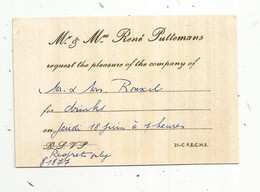 Mr & Mme René Puttemans
request the pleasure of the company of
Mr. & Mrs.
for drinks
on Jeudi 10 Juin à heures
R.S.V.P. 21-C P.E.C.H.S.
Regrets only
81877